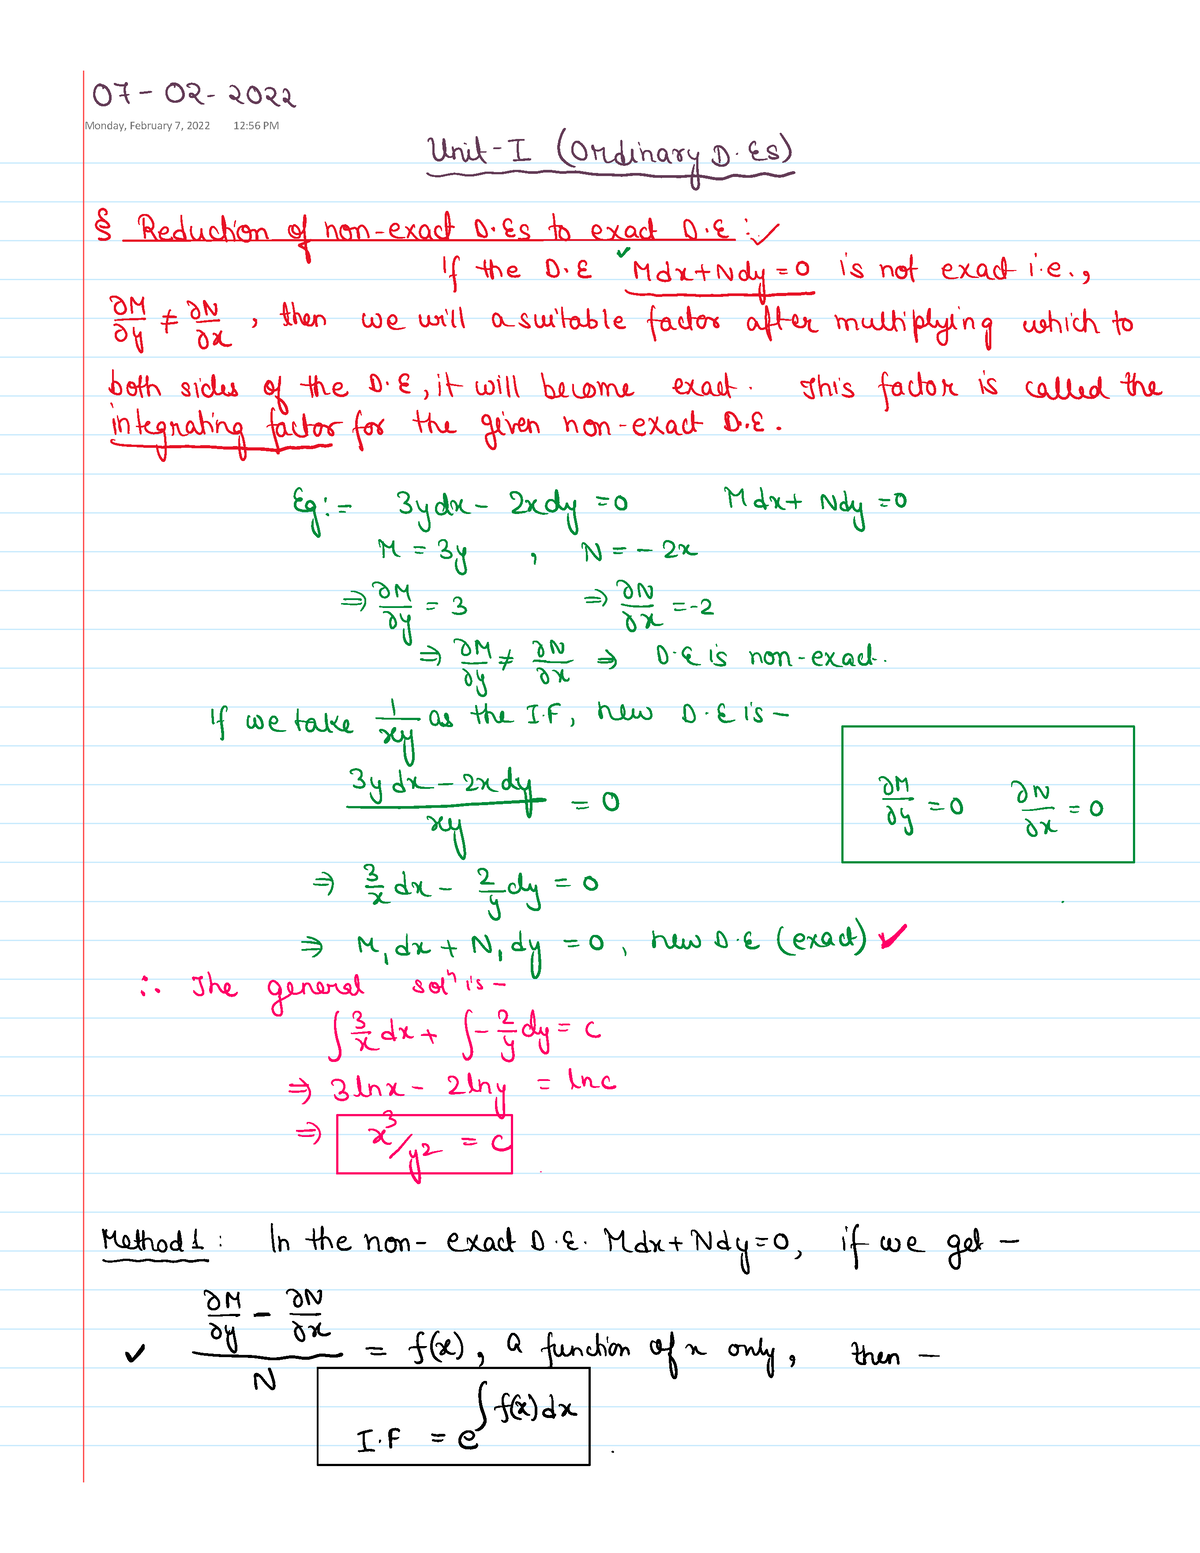 07-02-2022
Monday, February 7, 2022 12:56 PM
Unit-I (Ordinary D.Es)
§ Reduction of non-exact D.Es to exact D.E :✓
If the D.E ✓Mdx+Ndy=0 is not exact i.e.,
∂M/∂y ≠ ∂N/∂x , then we will a suitable factor after multiplying which to
both sides of the D.E, it will become exact. This factor is called the
integrating factor for the given non-exact D.E.
Eg:- 3ydx - 2xdy =0 Mdx+ Ndy =0
M = 3y , N = - 2x
⇒ ∂M/∂y = 3 ⇒ ∂N/∂x =-2
⇒ ∂M/∂y ≠ ∂N/∂x ⇒ D.E is non-exact.
If we take 1/xy as the I.F, new D.E is -
(3y dx - 2x dy)/xy = 0
∂M/∂y =0 ∂N/∂x = 0
⇒ 3/x dx - 2/y dy = 0
⇒ M₁dx + N₁dy =0, new D.E (exact) ✓
∴ The general solⁿ is -
∫3/x dx + ∫-2/y dy = c
⇒ 3lnx - 2lny = lnc
⇒ x³/y² = c
Method 1 : In the non- exact D.E. Mdx+Ndy=0, if we get -
✓ (∂M/∂y - ∂N/∂x)/N = f(x), a function of x only, then -
I.F = e^∫f(x)dx .